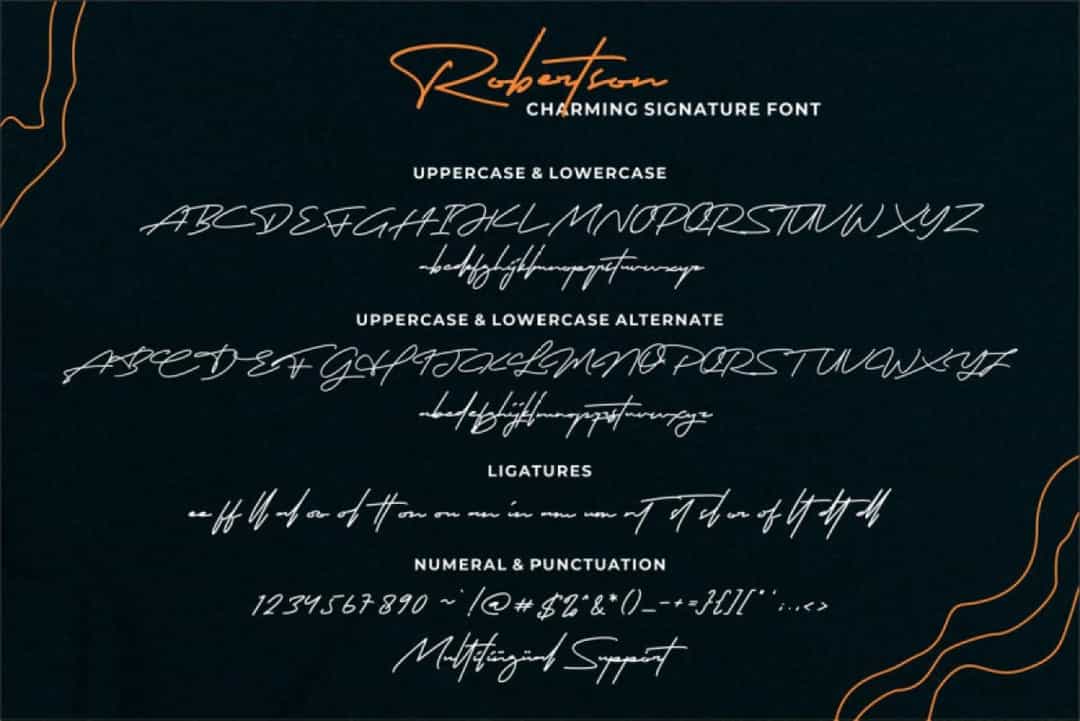 Robertson
CHARMING SIGNATURE FONT
UPPERCASE & LOWERCASE
ABCDEFGHIJKLMNOPQRSTUVWXYZ
abcdefghijklmnopqrstuvwxyz
UPPERCASE & LOWERCASE ALTERNATE
ABCDEFGHIJKLMNOPQRSTUVWXYZ
abcdefghijklmnopqrstuvwxyz
LIGATURES
ee ff ll al or ol tt on
NUMERAL & PUNCTUATION
1234567890 ~ ` ! @ # $ % ^ & * ( ) _ - + = } { ] [
Multilingual Support